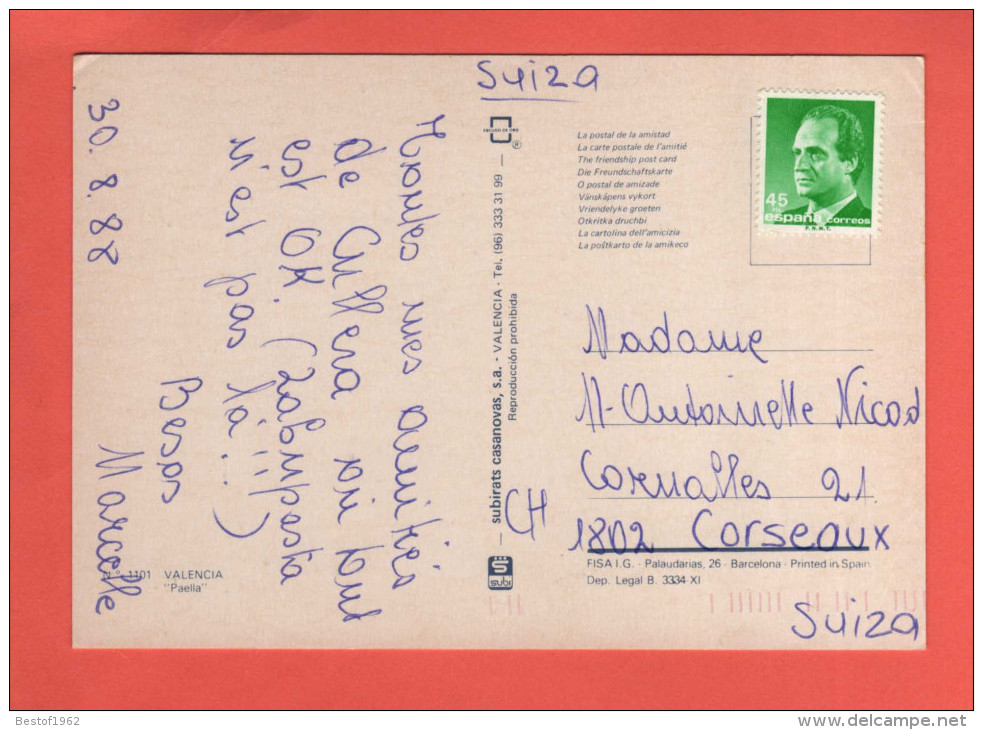 Suiza
30. 8. 88
Toutes mes amitiés
de Cullera où tout
est OK.
n'est pas là!!)
Besos
Marcelle
N.° 1101 VALENCIA
"Paella"
subirats casanovas, s.a. - VALENCIA - Tel. (96) 333 31 99
Reproducción prohibida
subi
La postal de la amistad
La carte postale de l'amitié
The friendship post card
Die Freundschaftskarte
O postal de amizade
Vänskåpens vykort
Vriendelyke groeten
Otkritka druchbi
La cartolina dell'amicizia
La poŝtkarto de la amikeco
45
españa correos
F.N.M.T.
Madame
M-Antoinette Nicod
Cornalles 21
CH
1802 Corseaux
FISA I.G. - Palaudarias, 26 - Barcelona - Printed in Spain
Dep. Legal B. 3334-XI
Suiza
Bestof1962
delcampe.net